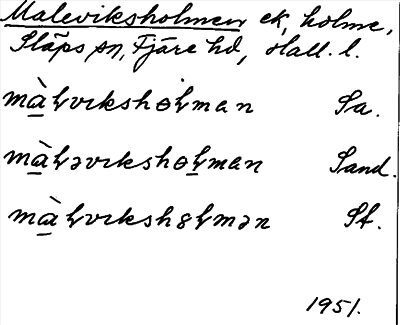 Maleviksholmen ek, holme,
Släps sn, Fjäre hd, Hall. l.
màɭvıkshɵɭman Sa.
màɭəvıkshɵɭman Sand.
màɭvıksh8ɭmən St.
1951.